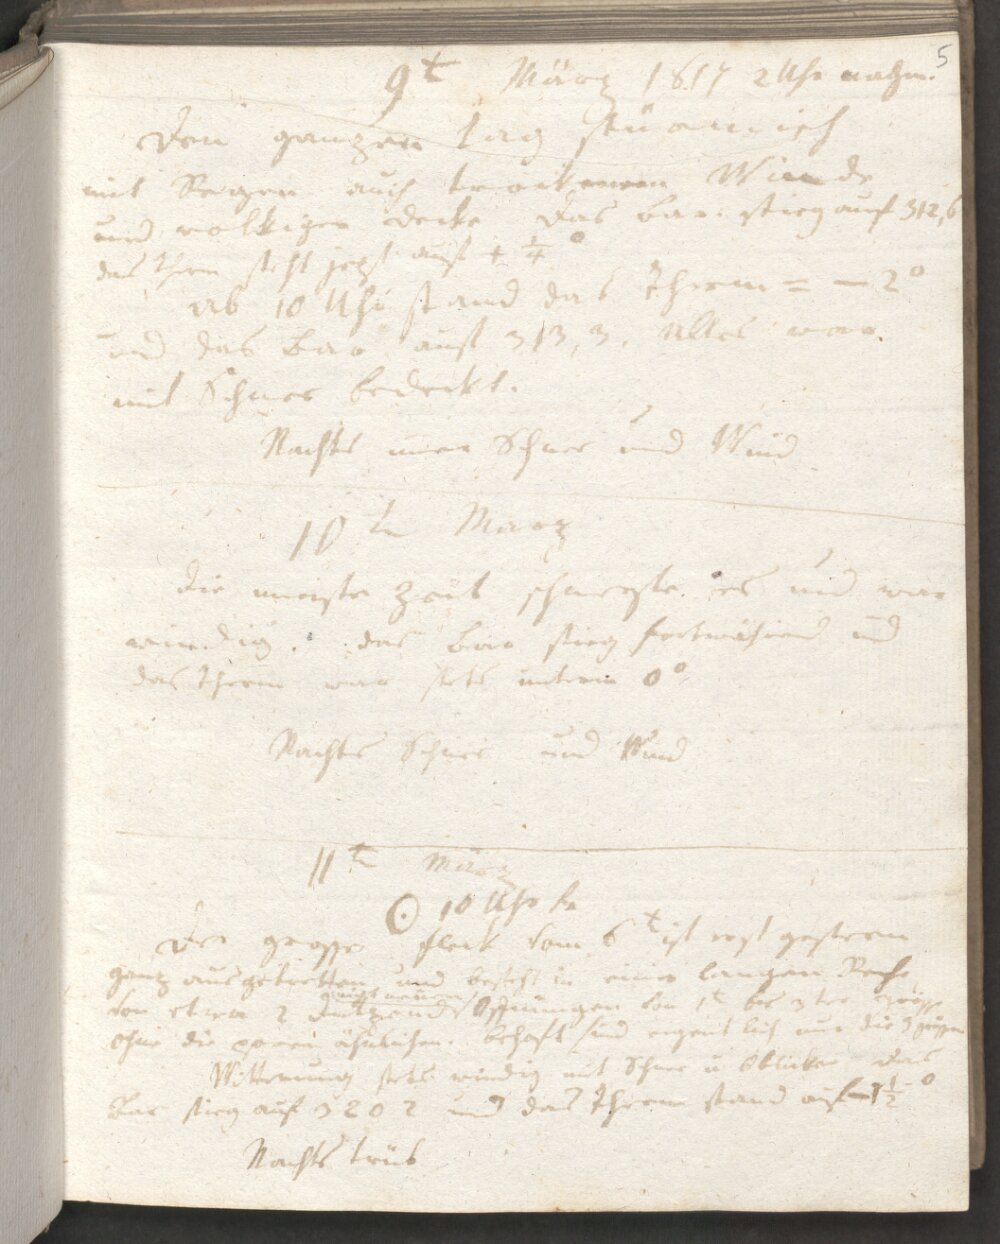 5
9t März 1817 2 Uhr nachm.
Den ganzen Tag stürmisch
mit Regen auch trockenem Winde
und wolkiger Decke das Bar. stieg auf 312,6
das Therm steht jezt auf + 1/4°
Ab 10 Uhr stand das Therm = — 2°
und das Bar auf 313,3. Alles war
mit Schnee bedeckt.
Nachts Schnee und Wind
10t März
die meiste Zeit schneyte es und war
windig. das Bar stieg fortwährend und
das Therm war stets unterm 0°
Nachts Schnee und Wind
11t März
⊙ 10 Uhr
Der grosse Fleck vom 6t ist erst gestern
ganz ausgetretten und besteht in einer langen Reihe
von etwa 2 Dutzend Öffnungen von 1t bis 3ter Grösse
ohne die ähnlichen. behoft sind eigentlich nur die 3 grossen
Witterung stets windig mit Schnee u das
Bar stieg auf 320 2 und das Therm stand auf —1 1/2°
Nachts trüb